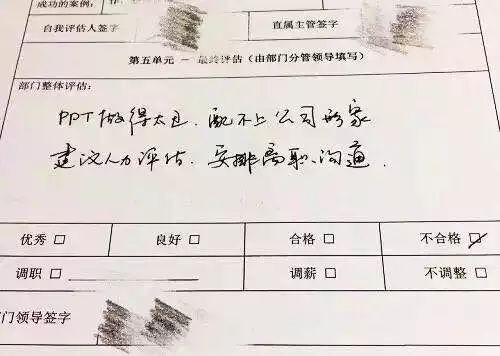 成功的案例：
自我评估人签字 直属主管签字
第五单元 — 最终评估（由部门分管领导填写）
部门整体评估：
PPT做得太丑，配不上公司形象
建议人力评估，安排离职沟通.
优秀 □ 良好 □ 合格 □ 不合格 ☑
调职 □ 调薪 □ 不调整 □
门领导签字